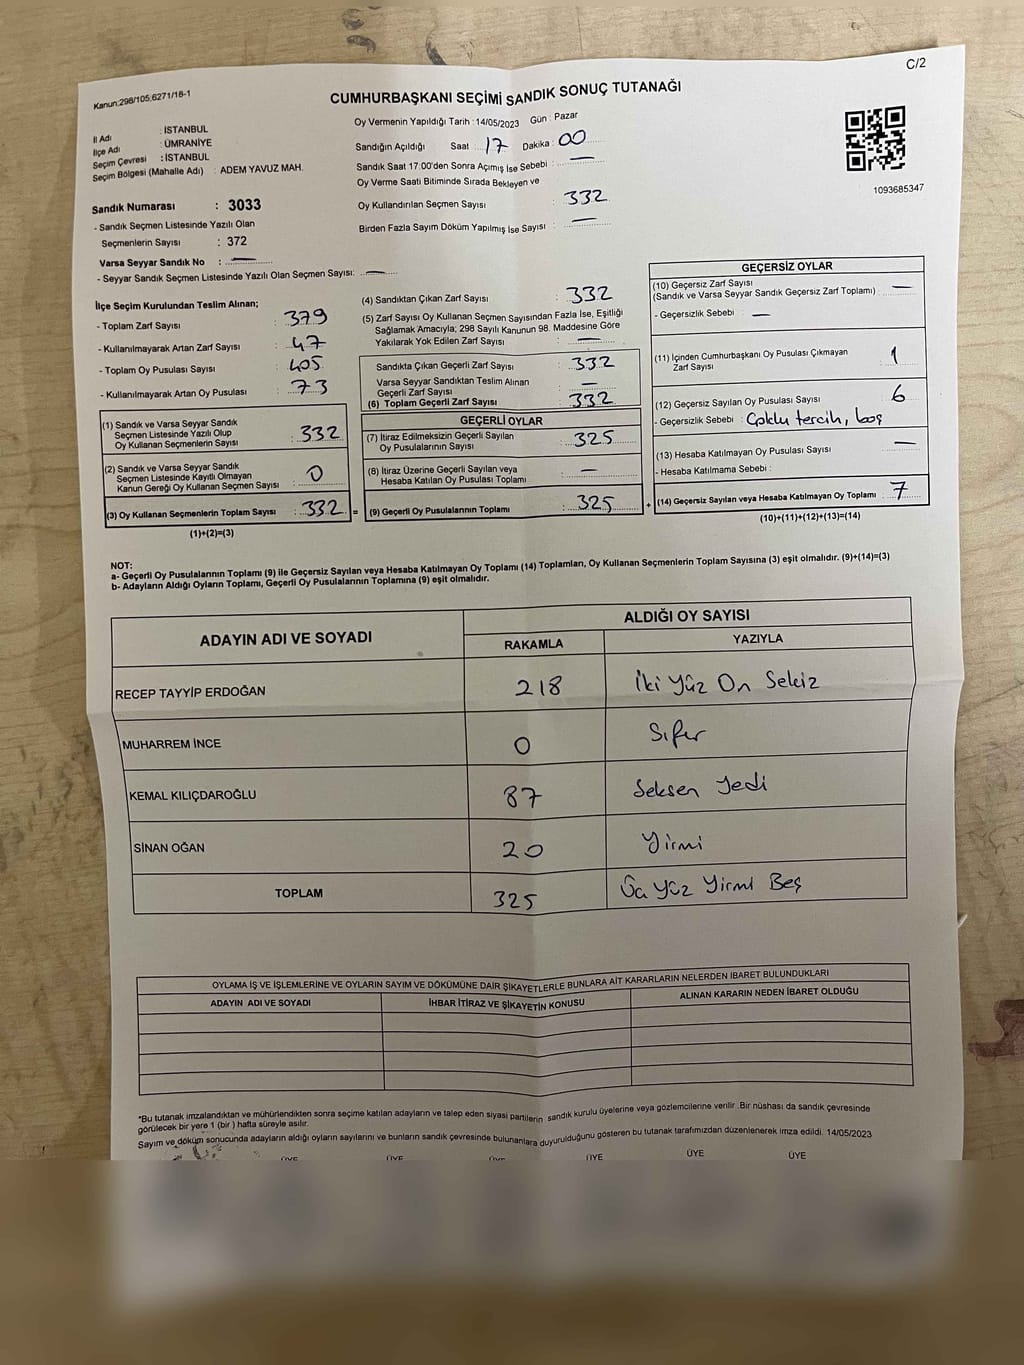 C/2
Kanun:298/105;6271/18-1
CUMHURBAŞKANI SEÇİMİ SANDIK SONUÇ TUTANAĞI
İl Adı : İSTANBUL
İlçe Adı : ÜMRANİYE
Seçim Çevresi : İSTANBUL
Seçim Bölgesi (Mahalle Adı) : ADEM YAVUZ MAH.
Sandık Numarası : 3033
- Sandık Seçmen Listesinde Yazılı Olan
Seçmenlerin Sayısı : 372
Varsa Seyyar Sandık No : —
- Seyyar Sandık Seçmen Listesinde Yazılı Olan Seçmen Sayısı: —
Oy Vermenin Yapıldığı Tarih : 14/05/2023 Gün : Pazar
Sandığın Açıldığı Saat : 17 Dakika : 00
Sandık Saat 17:00'den Sonra Açımış İse Sebebi : —
Oy Verme Saati Bitiminde Sırada Bekleyen ve
Oy Kullandırılan Seçmen Sayısı : 332
Birden Fazla Sayım Döküm Yapılmış İse Sayısı : —
1093685347
İlçe Seçim Kurulundan Teslim Alınan;
- Toplam Zarf Sayısı : 379
- Kullanılmayarak Artan Zarf Sayısı : 47
- Toplam Oy Pusulası Sayısı : 405
- Kullanılmayarak Artan Oy Pusulası : 73
(1) Sandık ve Varsa Seyyar Sandık
Seçmen Listesinde Yazılı Olup
Oy Kullanan Seçmenlerin Sayısı : 332
(2) Sandık ve Varsa Seyyar Sandık
Seçmen Listesinde Kayıtlı Olmayan
Kanun Gereği Oy Kullanan Seçmen Sayısı : 0
(3) Oy Kullanan Seçmenlerin Toplam Sayısı : 332 =
(1)+(2)=(3)
(4) Sandıktan Çıkan Zarf Sayısı : 332
(5) Zarf Sayısı Oy Kullanan Seçmen Sayısından Fazla İse, Eşitliği
Sağlamak Amacıyla; 298 Sayılı Kanunun 98. Maddesine Göre
Yakılarak Yok Edilen Zarf Sayısı : —
Sandıkta Çıkan Geçerli Zarf Sayısı : 332
Varsa Seyyar Sandıktan Teslim Alınan
Geçerli Zarf Sayısı : —
(6) Toplam Geçerli Zarf Sayısı : 332
GEÇERLİ OYLAR
(7) İtiraz Edilmeksizin Geçerli Sayılan
Oy Pusulalarının Sayısı : 325
(8) İtiraz Üzerine Geçerli Sayılan veya
Hesaba Katılan Oy Pusulası Toplamı : —
(9) Geçerli Oy Pusulalarının Toplamı : 325 +
GEÇERSİZ OYLAR
(10) Geçersiz Zarf Sayısı
(Sandık ve Varsa Seyyar Sandık Geçersiz Zarf Toplamı) : —
- Geçersizlik Sebebi : —
(11) İçinden Cumhurbaşkanı Oy Pusulası Çıkmayan
Zarf Sayısı : 1
(12) Geçersiz Sayılan Oy Pusulası Sayısı : 6
- Geçersizlik Sebebi : Çoklu tercih, boş
(13) Hesaba Katılmayan Oy Pusulası Sayısı : —
- Hesaba Katılmama Sebebi :
(14) Geçersiz Sayılan veya Hesaba Katılmayan Oy Toplamı : 7
(10)+(11)+(12)+(13)=(14)
NOT:
a- Geçerli Oy Pusulalarının Toplamı (9) ile Geçersiz Sayılan veya Hesaba Katılmayan Oy Toplamı (14) Toplamları, Oy Kullanan Seçmenlerin Toplam Sayısına (3) eşit olmalıdır. (9)+(14)=(3)
b- Adayların Aldığı Oyların Toplamı, Geçerli Oy Pusulalarının Toplamına (9) eşit olmalıdır.
ADAYIN ADI VE SOYADI ALDIĞI OY SAYISI
RAKAMLA YAZIYLA
RECEP TAYYİP ERDOĞAN 218 İki Yüz On Sekiz
MUHARREM İNCE 0 Sıfır
KEMAL KILIÇDAROĞLU 87 Seksen Yedi
SİNAN OĞAN 20 Yirmi
TOPLAM 325 Üç Yüz Yirmi Beş
OYLAMA İŞ VE İŞLEMLERİNE VE OYLARIN SAYIM VE DÖKÜMÜNE DAİR ŞİKAYETLERLE BUNLARA AİT KARARLARIN NELERDEN İBARET BULUNDUKLARI
ADAYIN ADI VE SOYADI İHBAR İTİRAZ VE ŞİKAYETİN KONUSU ALINAN KARARIN NEDEN İBARET OLDUĞU
*Bu tutanak imzalandıktan ve mühürlendikten sonra seçime katılan adayların ve talep eden siyasi partilerin sandık kurulu üyelerine veya gözlemcilerine verilir. Bir nüshası da sandık çevresinde
görülecek bir yere 1 (bir ) hafta süreyle asılır.
Sayım ve döküm sonucunda adayların aldığı oyların sayılarını ve bunların sandık çevresinde bulunanlara duyurulduğunu gösteren bu tutanak tarafımızdan düzenlenerek imza edildi. 14/05/2023
ÜYE ÜYE ÜYE ÜYE ÜYE ÜYE